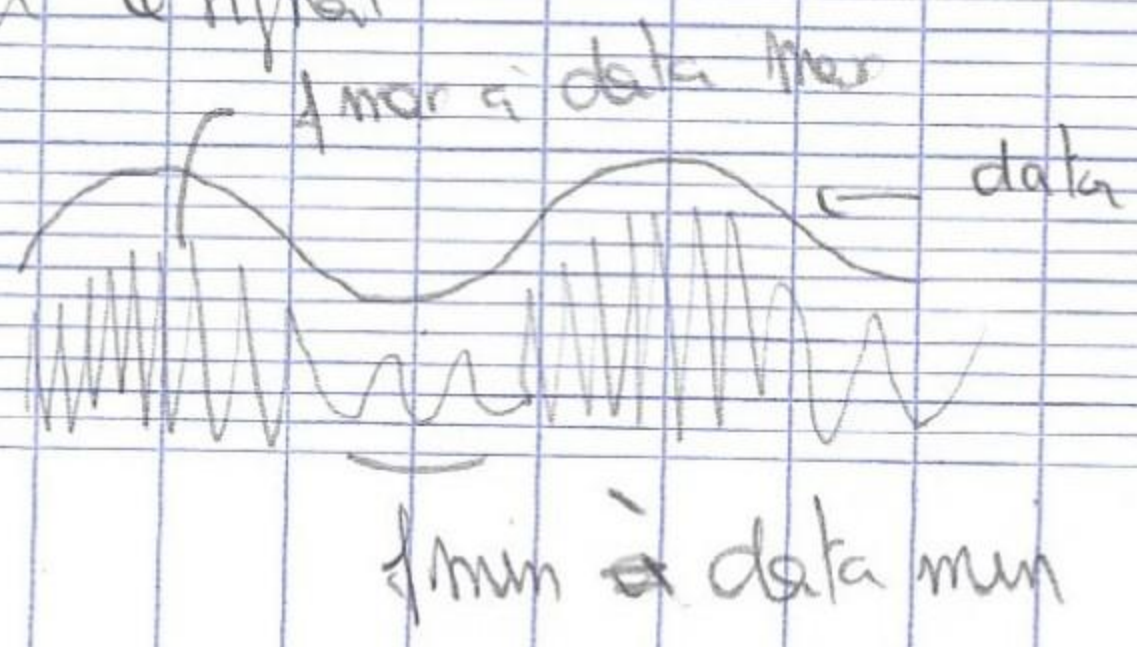 f max à data max
data
f min à data min